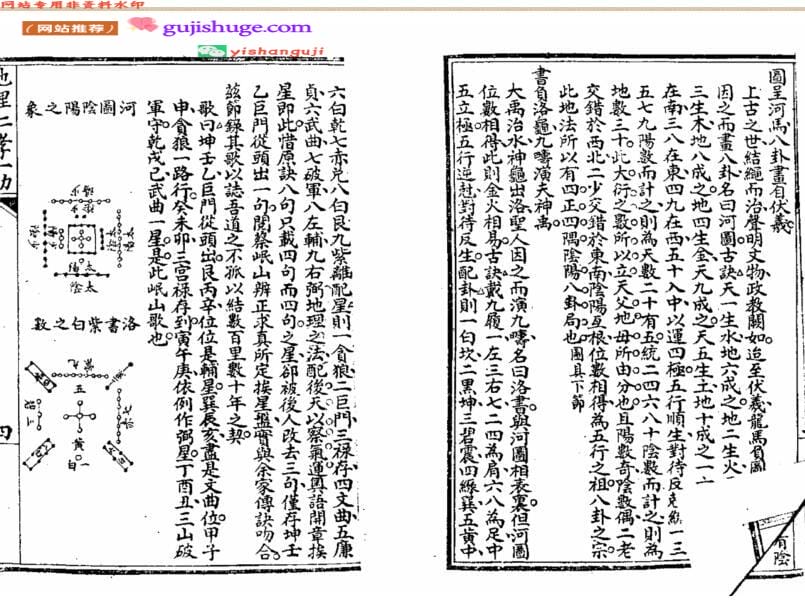 网站专用非资料水印
（网站推荐）
gujishuge.com
yishanguji
圖呈河馬八卦畫自伏羲
上古之世結繩而治聲明文物政教闕如迨至伏羲龍馬負圖
因之而畫八卦名曰河圖古訣天一生水地六成之地二生火
三生木地八成之地四生金天九成之天五生土地十成之一六
在南三八在東四九在西五十入中以運四極五行順生對待反克
一三
五七九陽數而計之則為天數二十有五統二四六八十陰數而計之則為
地數三十此大衍之數所以立天父地母所由分也且陽數奇陰數偶二老
交錯於西北二少交錯於東南陰陽互根位數相得為五行之祖八卦之宗
此地法所以有四正四隅陰陽八卦局也圖具下節
書負洛龜九疇演天神禹
大禹治水神龜出洛聖人因之而演九疇名曰洛書與河圖相表裏但河圖
位數相得此則金火相易古訣戴九履一左三右七二四為局六八為足中
五立極五行逆尅對待反生配卦則一白坎二黑坤三碧震四綠巽五黃中
有陰
六白乾七赤兑八白艮九紫離配星則一貪狼二巨門三祿存四文曲五廉
貞六武曲七破軍八左輔九右弼地理之法配後天以察氣運輿語開章挨
星即此惜原訣八句只載四句而四句之星卻被後人改去三句僅存坤壬
乙巨門從頭出一句閱蔡岷山辨正求真所定挨星盤實與余家傳訣吻合
茲節錄其歌以誌吾道之不孤以結數百里數十年之契
歌曰坤壬乙巨門從頭出艮丙辛位位是輔星巽辰亥盡是文曲位甲子
申貪狼一路行癸未卯三宫祿存到寅午庚依例作弼星丁酉丑三山破
軍守乾戌己武曲一星是此岷山歌也
河圖陰陽之象
太陽
太陰
洛書紫白之數
九紫
五黃
一白
四